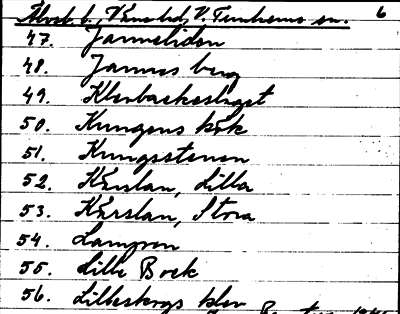 Älvsb. l., Värnested, V. Tunhems sn. 6
47. Jannelidon
48. Jannes berg
49. Klevbackeslaget
50. Kungens kök
51. Kungsstenen
52. Kärslan, Lilla
53. Kärslan, Stora
54. Lampron
55. Lille Bock
56. Lilleskogs klev